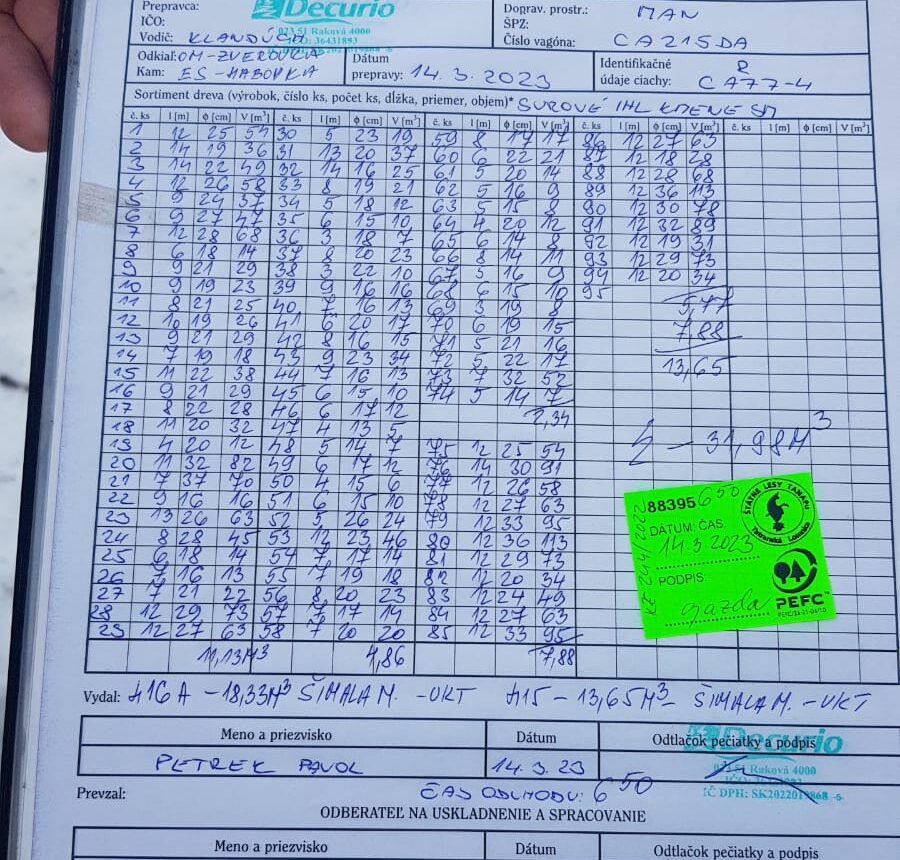 Prepravca:
Decurio
Doprav. prostr.: MAN
IČO:
023 51 Raková 4000
ŠPZ:
Vodič: KLANDUCH
IČO: 36431893
Číslo vagóna: CA215DA
Odkiaľ: OM-ZVEROVKA
Dátum
Identifikačné R
Kam: ES-HABOVKA
prepravy: 14.3.2023
údaje ciachy: CA77-4
Sortiment dreva (výrobok, číslo ks, počet ks, dĺžka, priemer, objem)* SUROVÉ IHL KMENE SM
č. ks l [m] ϕ [cm] V [m³] č. ks l [m] ϕ [cm] V [m³] č. ks l [m] ϕ [cm] V [m³] č. ks l [m] ϕ [cm] V [m³] č. ks l [m] ϕ [cm] V [m³]
1 12 25 54 30 5 23 19 59 8 17 17 86 12 27 63
2 14 19 36 31 13 20 37 60 6 22 21 87 12 18 28
3 14 22 49 32 14 16 25 61 5 20 14 88 12 28 68
4 12 26 58 33 8 19 21 62 5 16 9 89 12 36 113
5 9 24 37 34 5 18 12 63 5 15 8 90 12 30 78
6 9 27 47 35 6 15 10 64 4 20 12 91 12 32 89
7 12 28 68 36 3 18 7 65 6 14 8 92 12 19 31
8 6 18 14 37 8 20 23 66 8 14 11 93 12 29 73
9 9 21 29 38 3 22 10 67 5 16 9 94 12 20 34
10 9 19 23 39 9 16 16 68 6 15 10 95
5,77
11 8 21 25 40 7 16 13 69 3 19 8
12 10 19 26 41 6 20 17 70 6 19 15
7,88
13 9 21 29 42 8 16 15 71 5 21 16
14 7 19 18 43 9 23 34 72 5 22 17
13,65
15 11 22 38 44 7 16 13 73 7 32 52
16 9 21 29 45 6 15 10 74 5 14 7
17 8 22 28 46 6 17 12
2,34
18 11 20 32 47 4 13 5
19 4 20 12 48 5 14 7 75 12 25 54
- 31,98M³
20 11 32 82 49 6 17 12 76 14 30 91
21 7 37 70 50 4 15 6 77 12 26 58
22 9 16 16 51 6 15 10 78 12 27 63
23 13 26 63 52 5 26 24 79 12 33 95
24 8 28 45 53 12 23 46 80 12 36 113
25 6 18 14 54 7 17 14 81 12 29 73
26 7 16 13 55 7 19 18 82 12 20 34
27 7 21 22 56 8 20 23 83 12 24 49
28 12 29 73 57 7 17 14 84 12 27 63
29 12 27 63 58 7 20 20 85 12 33 95
11,13M³ 4,86 7,88
88395 650
ŠTÁTNE LESY TANAPU
Tatranská Lomnica
DÁTUM: ČAS:
14.3.2023
PODPIS:
gazda
PEFC™
Vydal: 416A - 18,33M³ ŠIMALA M. - UKT 415 - 13,65M³ ŠIMALA M. - UKT
Meno a priezvisko Dátum Odtlačok pečiatky a podpis
Decurio
PETREK PAVOL 14.3.23
023 51 Raková 4000
Prevzal: ČAS ODCHODU: 6 50
ODBERATEĽ NA USKLADNENIE A SPRACOVANIE
Meno a priezvisko Dátum Odtlačok pečiatky a podpis